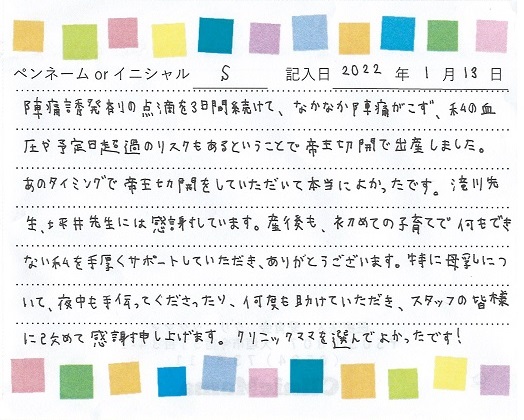 ペンネーム or イニシャル S 記入日 2022 年 1 月 13 日
陣痛誘発剤の点滴を3日間続けて、なかなか陣痛がこず、私の血
圧や予定日超過のリスクもあるということで帝王切開で出産しました。
あのタイミングで帝王切開をしていただいて本当によかったです。滝川先
生、坪井先生には感謝しています。産後も、初めての子育てで何もでき
ない私を手厚くサポートしていただき、ありがとうございます。特に母乳につ
いて、夜中も手伝ってくださったり、何度も助けていただき、スタッフの皆様
に改めて感謝申し上げます。クリニックママを選んでよかったです!